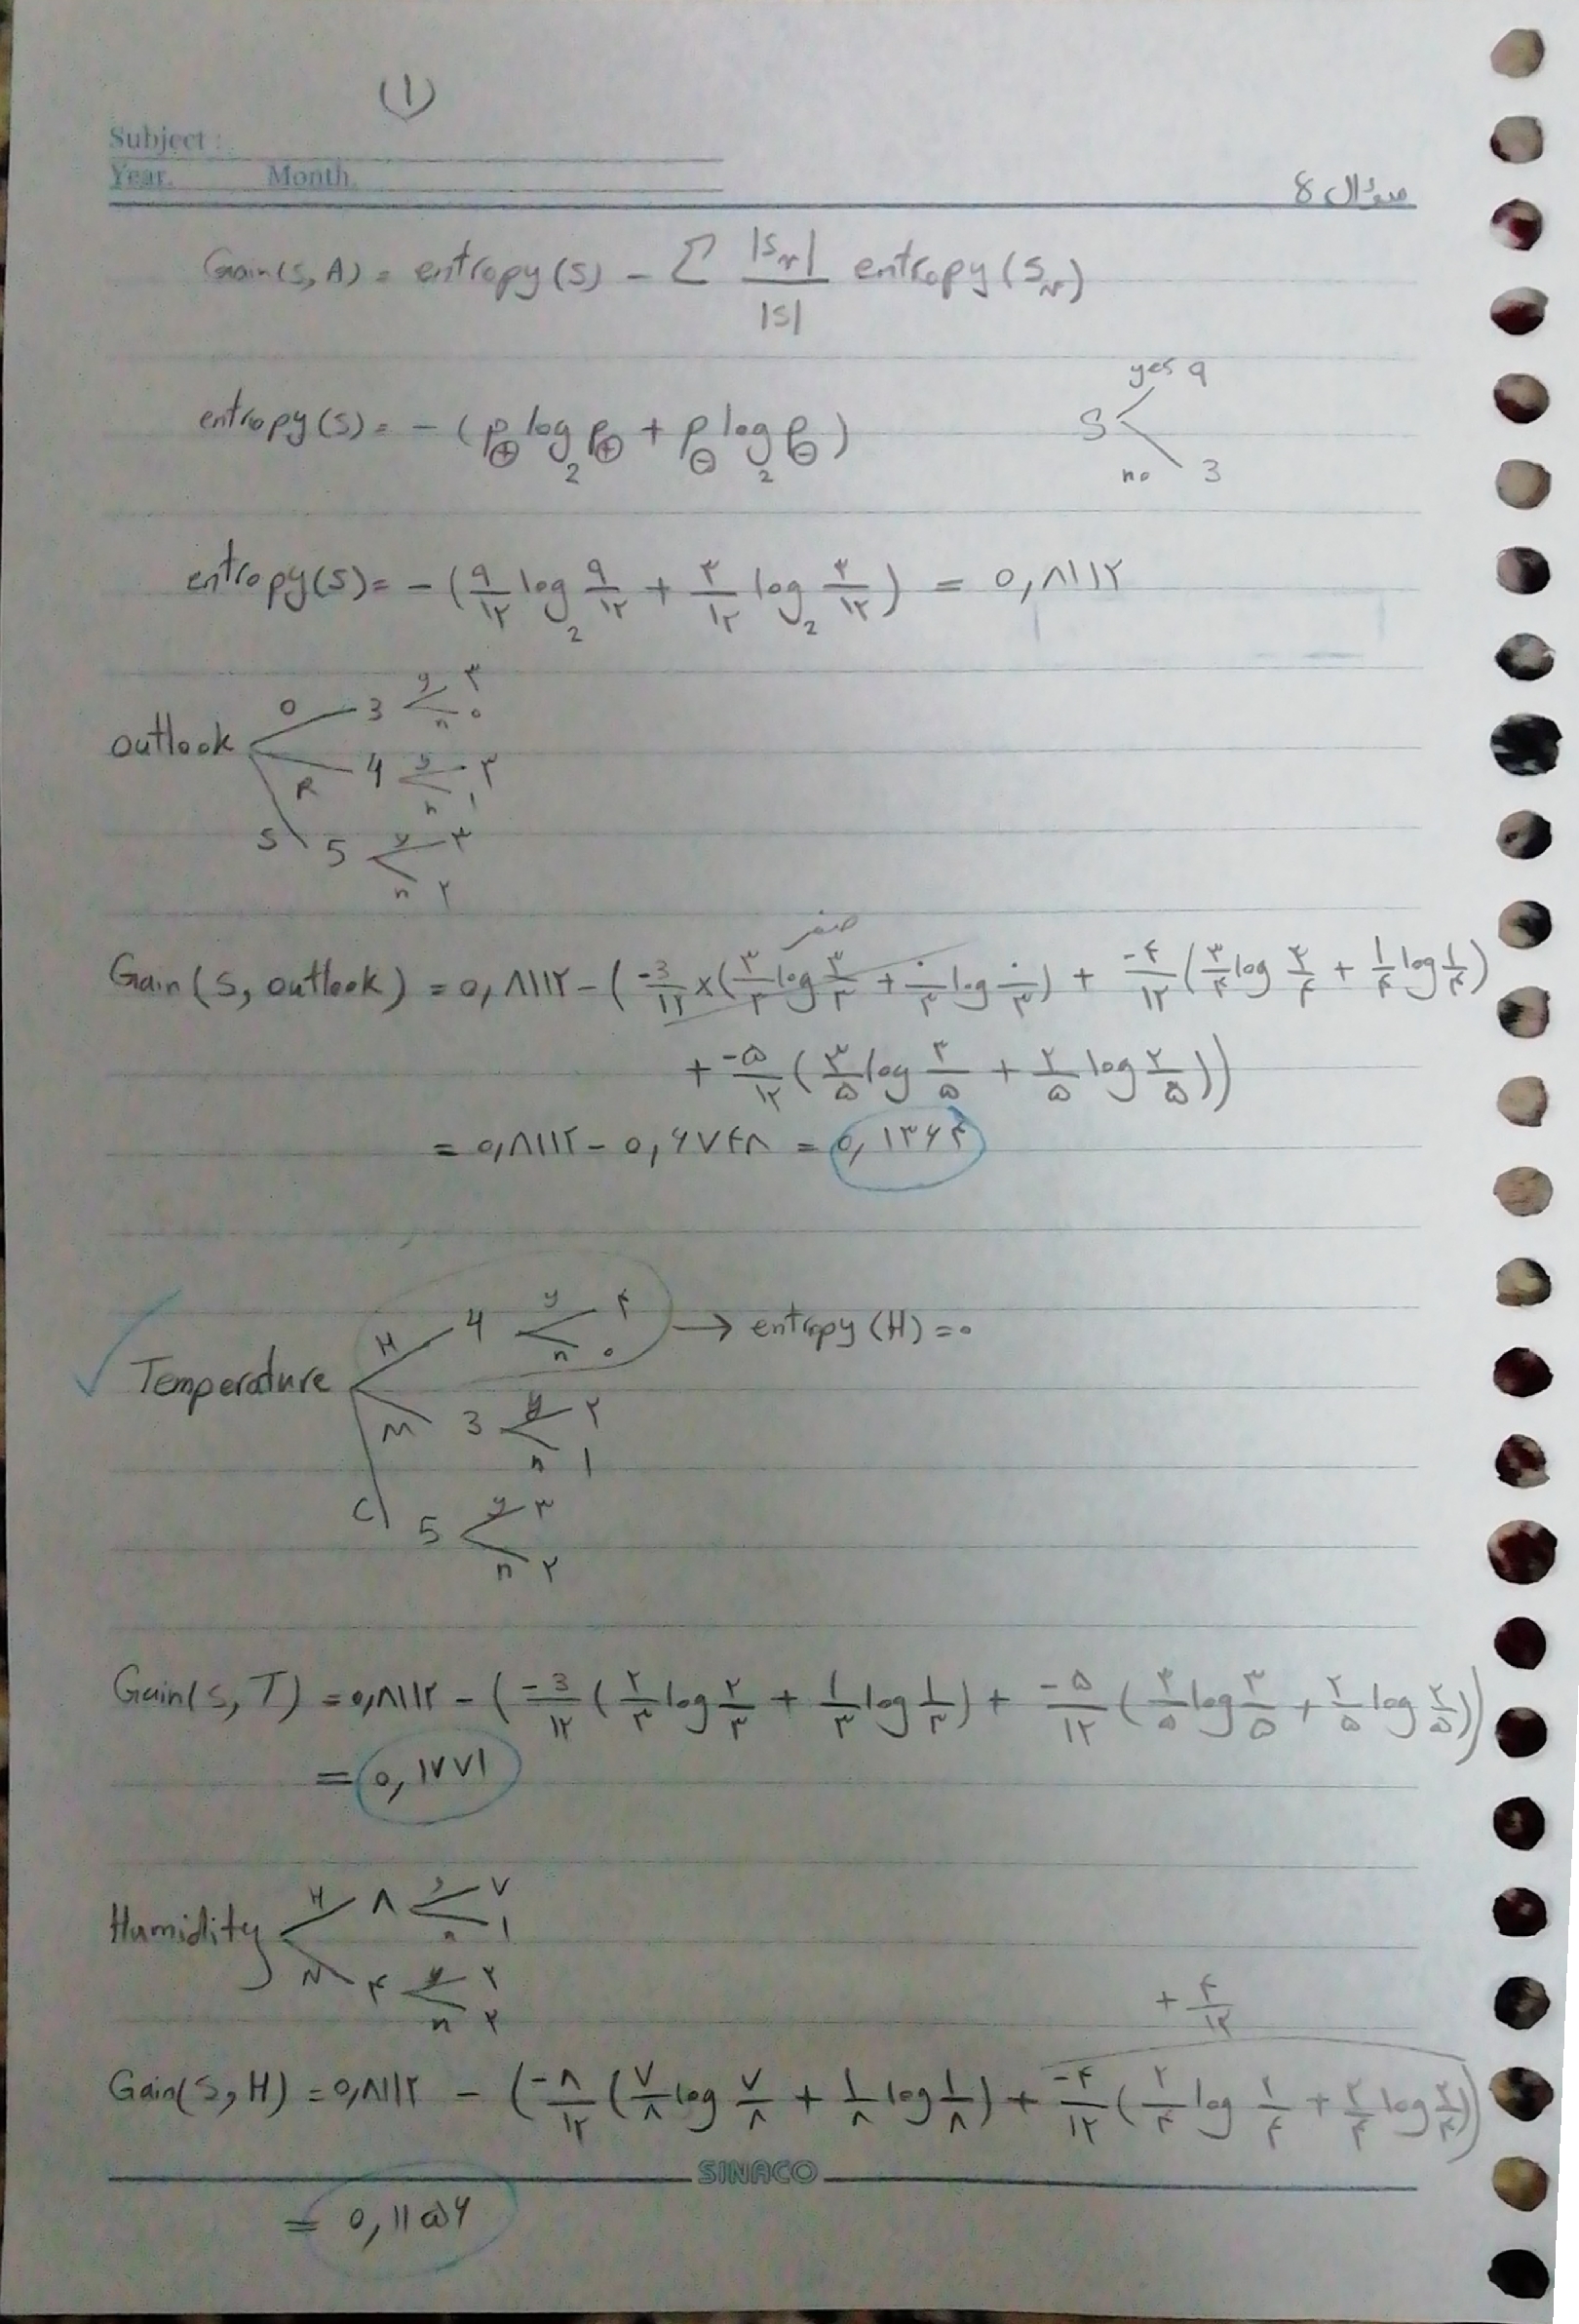 (1)
Subject :
Year. Month.
سؤال 8
Gain(S, A) = entropy(S) - Σ |Sv| / |S| entropy(Sv)
entropy(S) = - (p⊕ log2 p⊕ + p⊖ log2 p⊖)
S yes 9
no 3
entropy(S) = - (۹/۱۲ log2 ۹/۱۲ + ۳/۱۲ log2 ۳/۱۲) = ۰,۸۱۱۲
outlook
O 3 y ۳ n ۰
R 4 y ۳ n ۱
S 5 y ۳ n ۲
صفر
Gain(S, outlook) = ۰,۸۱۱۲ - (-3/۱۲ × (۳/۳ log ۳/۳ + ۰/۳ log ۰/۳) + -۴/۱۲ (۳/۴ log ۳/۴ + ۱/۴ log ۱/۴)
+ -۵/۱۲ (۳/۵ log ۳/۵ + ۲/۵ log ۲/۵))
= ۰,۸۱۱۲ - ۰,۶۷۴۸ = ۰,۱۳۶۴
Temperature
H 4 y ۴ n ۰ → entropy(H) = ۰
M 3 y ۲ n ۱
C 5 y ۳ n ۲
Gain(S, T) = ۰,۸۱۱۲ - (-3/۱۲ (۲/۳ log ۲/۳ + ۱/۳ log ۱/۳) + -۵/۱۲ (۳/۵ log ۳/۵ + ۲/۵ log ۲/۵))
= ۰,۱۷۷۱
Humidity
H ۸ y ۷ n ۱
N ۴ y ۲ n ۲
+ ۴/۱۲
Gain(S, H) = ۰,۸۱۱۲ - (-۸/۱۲ (۷/۸ log ۷/۸ + ۱/۸ log ۱/۸) + -۴/۱۲ (۲/۴ log ۲/۴ + ۲/۴ log ۲/۴))
SINACO
= ۰,۱۱۵۶